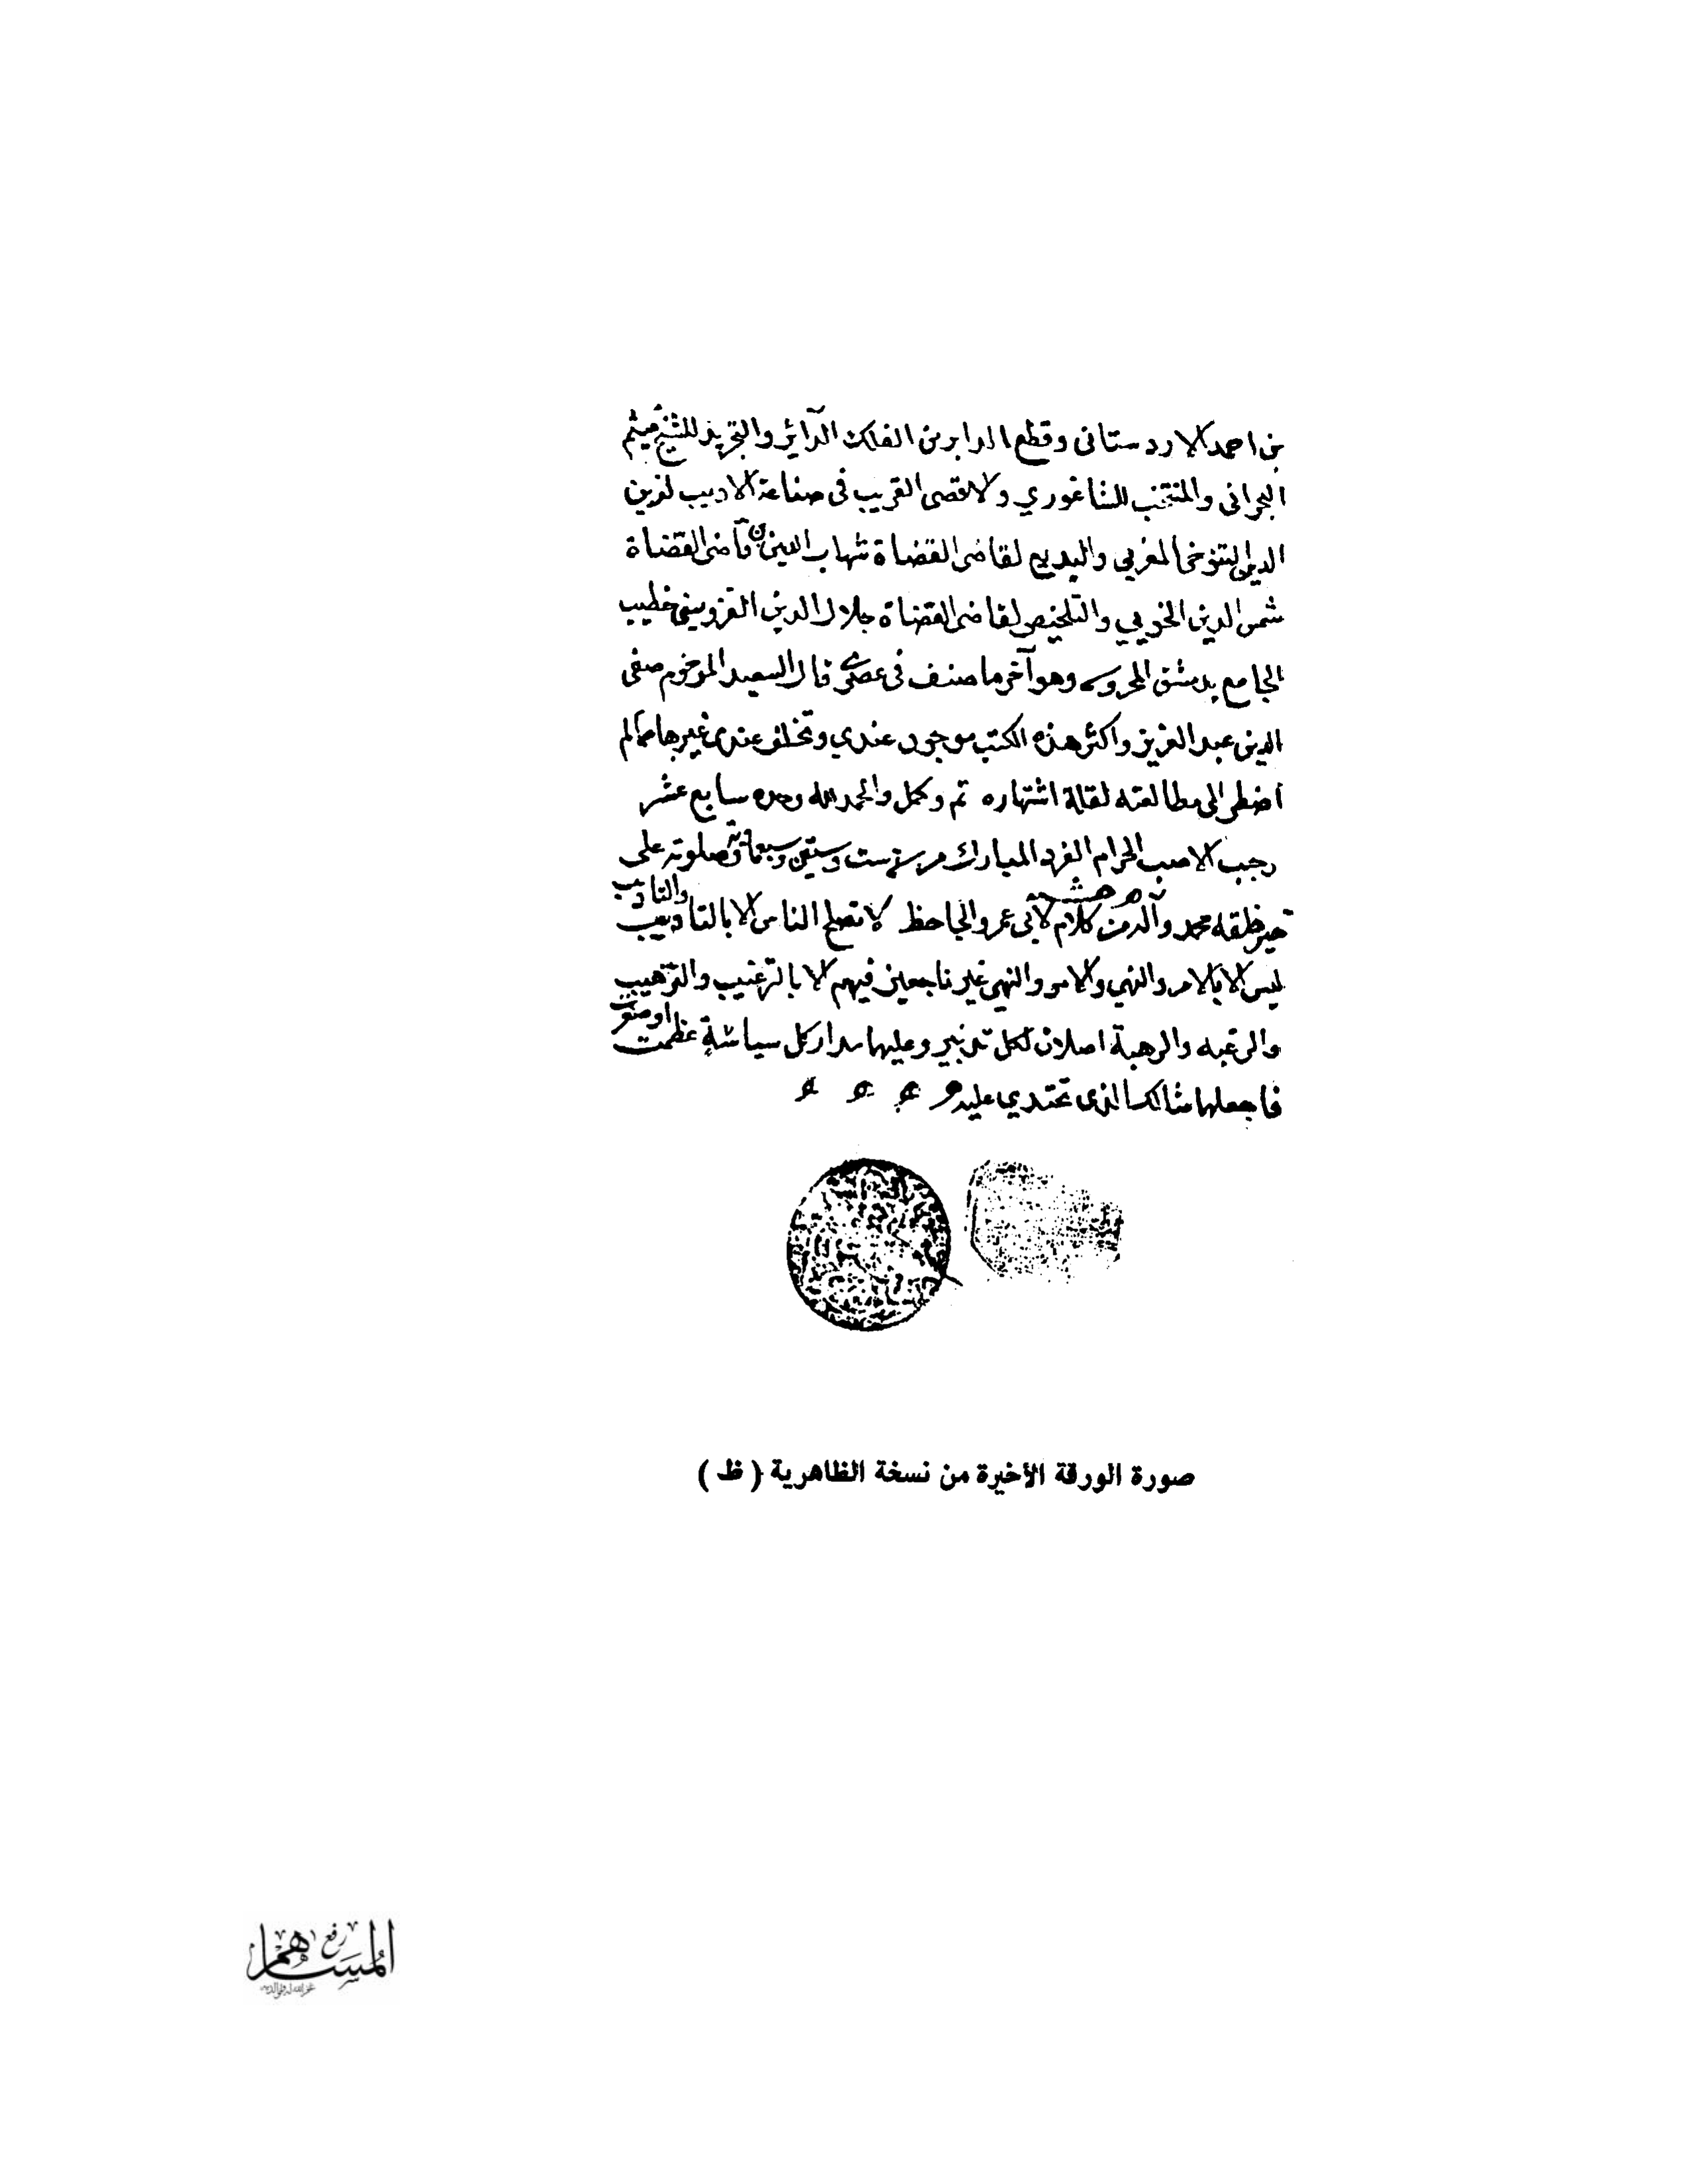 بن احمد الاردستانى وقطع الدابر من الفلك الدآئر والتجريد للشيخ ميثم
البحرانى والمنتخب للشاغوري والاقصى القريب فى صناعة الاديب لزين
الدين التنوخى المغربي والبديع لقاضى القضاة شهاب الدين بن قاضى القضاة
شمس الدين الخويي والتلخيص لقاضى القضاة جلال الدين القزوينى خطيب
الجامع بدمشق المحروسه وهو آخر ما صنف فى عصرى قال السعيد المرحوم صفى
الدين عبد العزيز واكثر هذه الكتب موجود عندي وتخلف عندى غيرها مما لم
اضطر الى مطالعته لقلة اشتهاره تم وكمل والحمد لله وحده سابع عشر
رجب الاصب الحرام الفرد المبارك من سنة ست وستين وسبعمائة وصلوته على
خير خلقه محمد وآله من كلام لابى عمرو الجاحظ لا تصلح الناس الا بالتاديب والتاديب
ليس الا بالامر والنهي والامر والنهى غير ناجعين فيهم الا بالترغيب والترهيب
والرغبه والرهبة اصلان لكل تدبير وعليها مدار كل سياسة عظمت او صغرت
فاجعلها مثالك الذى تحتذي عليه
صورة الورقة الأخيرة من نسخة الظاهرية ( ظ )
رفع
المساهم
غفر الله له ولوالديه